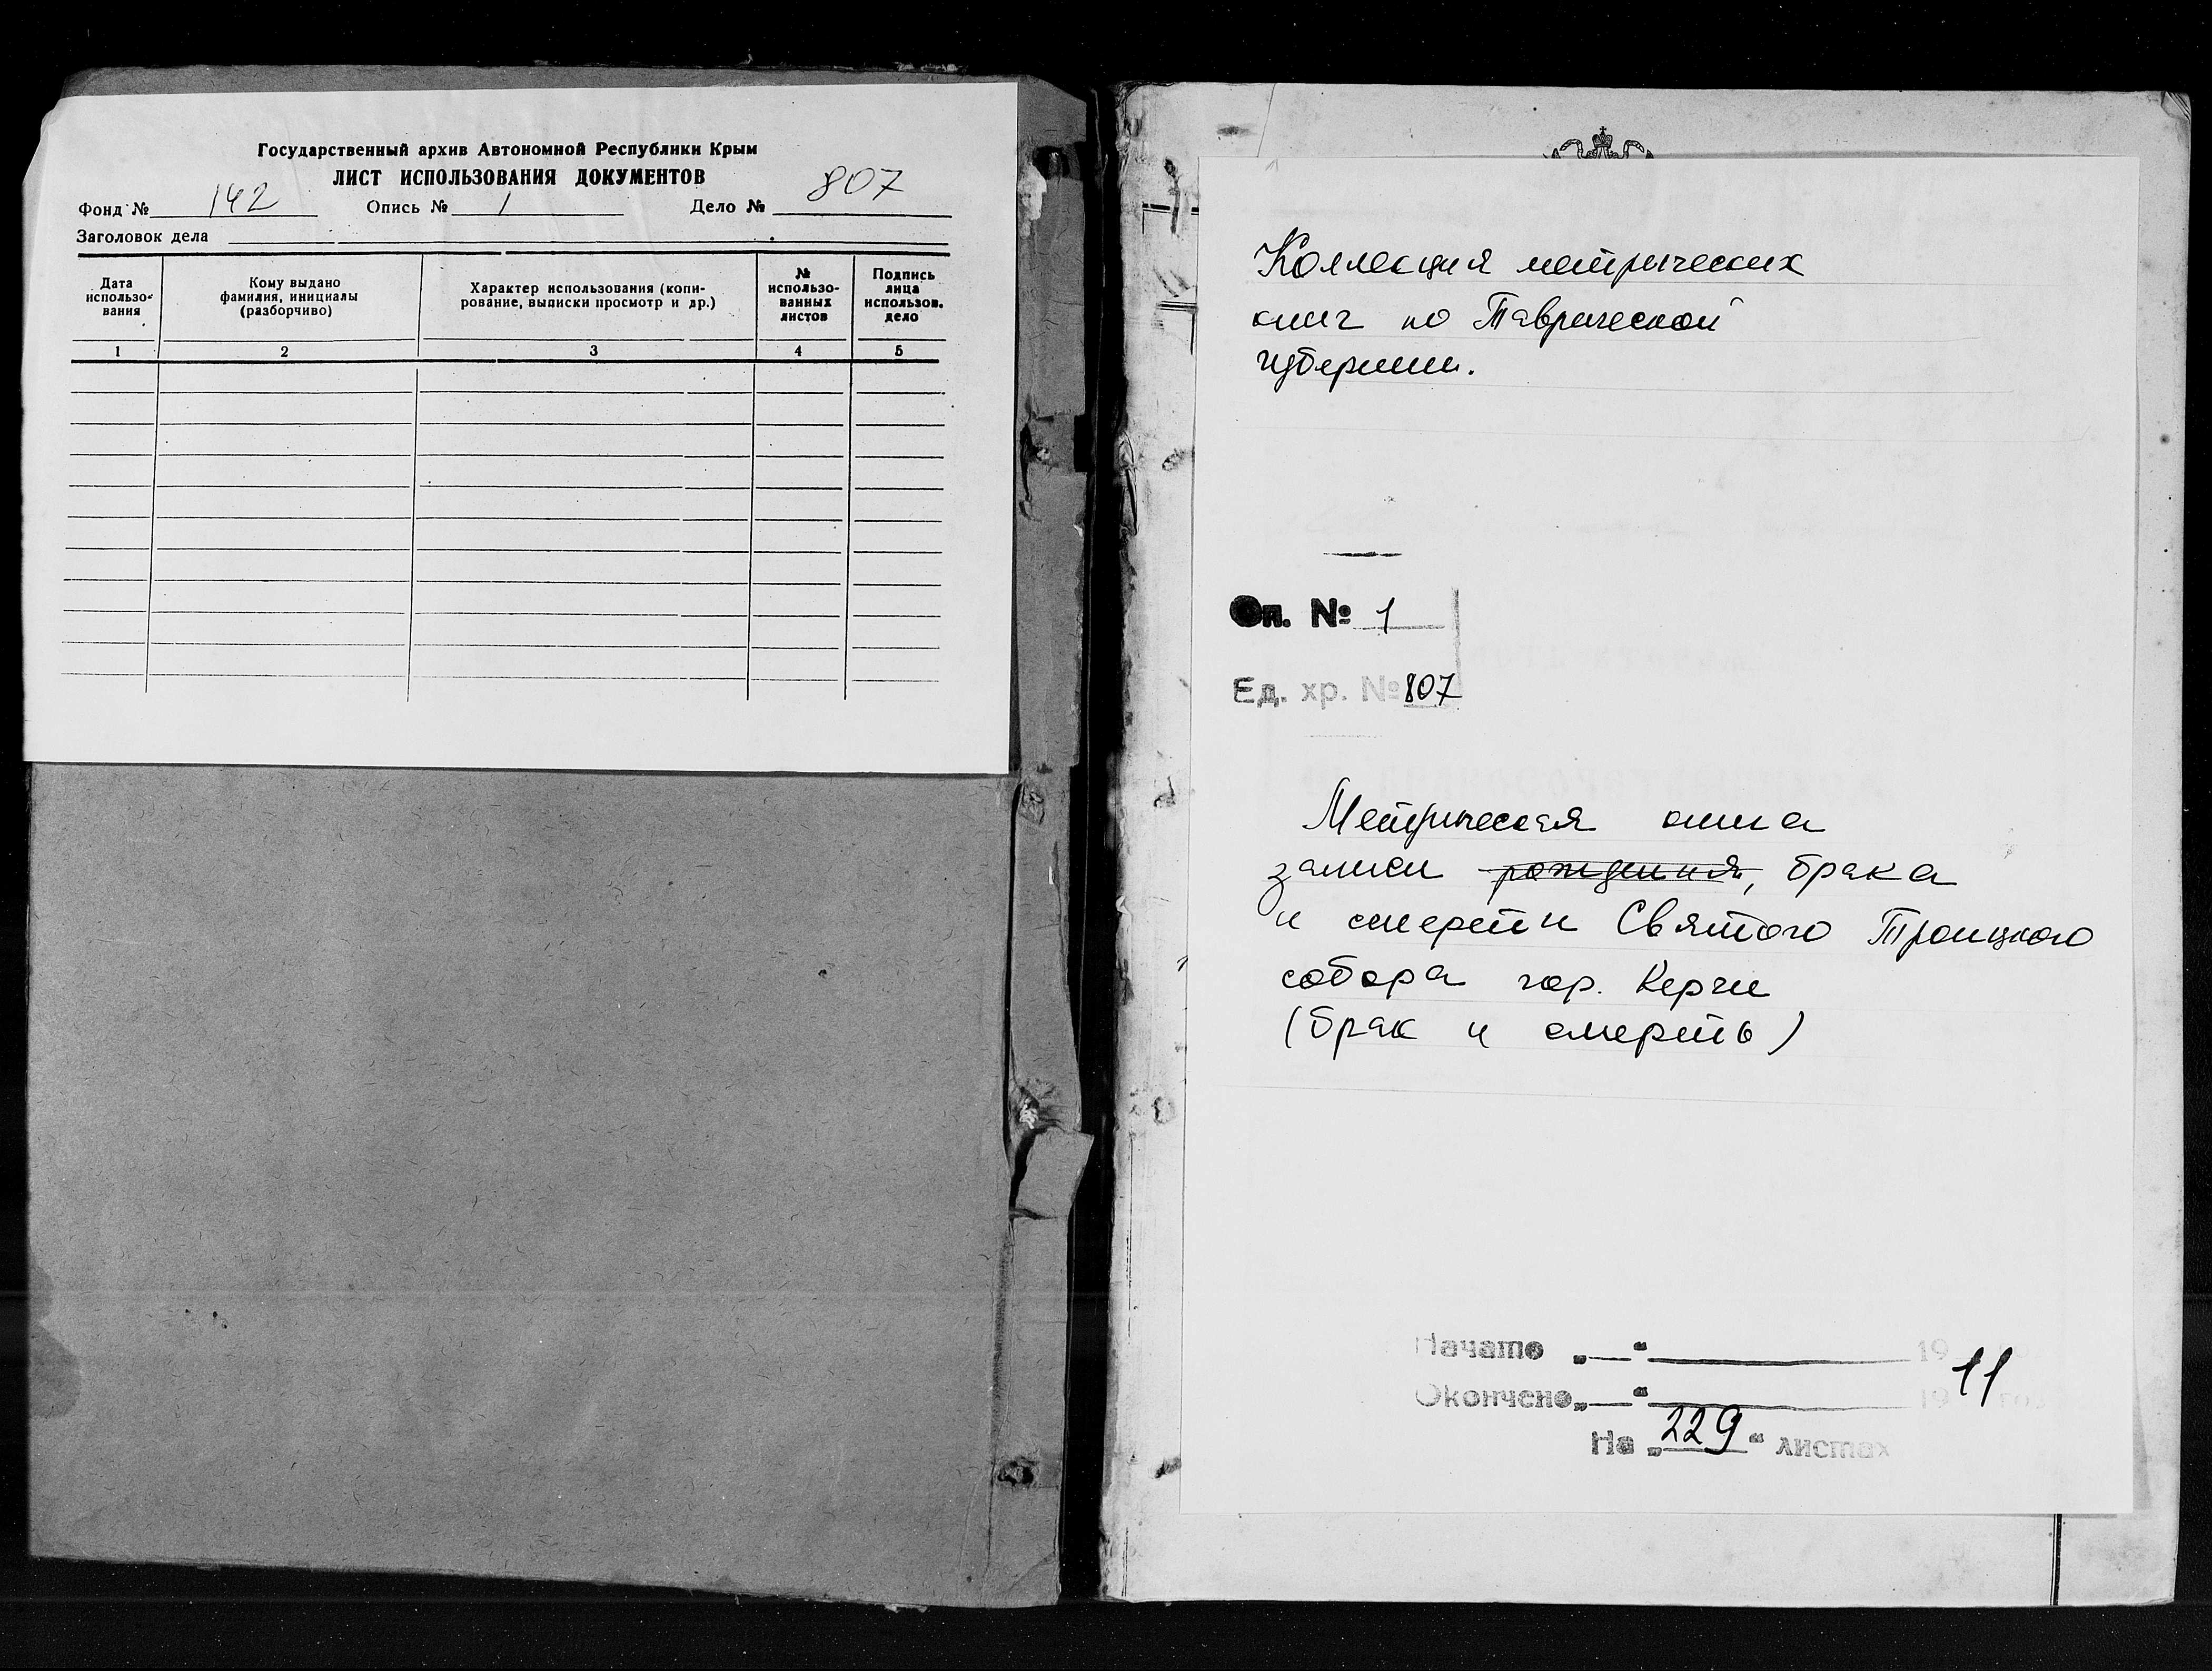 Государственный архив Автономной Республики Крым
ЛИСТ ИСПОЛЬЗОВАНИЯ ДОКУМЕНТОВ
Фонд № 142 Опись № 1 Дело № 807
Заголовок дела
Дата использо-вания
Кому выдано фамилия, инициалы (разборчиво)
Характер использования (копи-рование, выписки просмотр и др.)
№ использо-ванных листов
Подпись лица использов. дело
1 2 3 4 5
Коллекция метрических
книг по Таврической
губернии.
Оп. № 1
Ед. хр. № 807
Метрическая книга
записи рождения, брака
и смерти Святого Троицкого
собора гор. Керчи
(брак и смерть)
Начато „ “ 19
11
Окончено „ “ 19
На „229“ листах